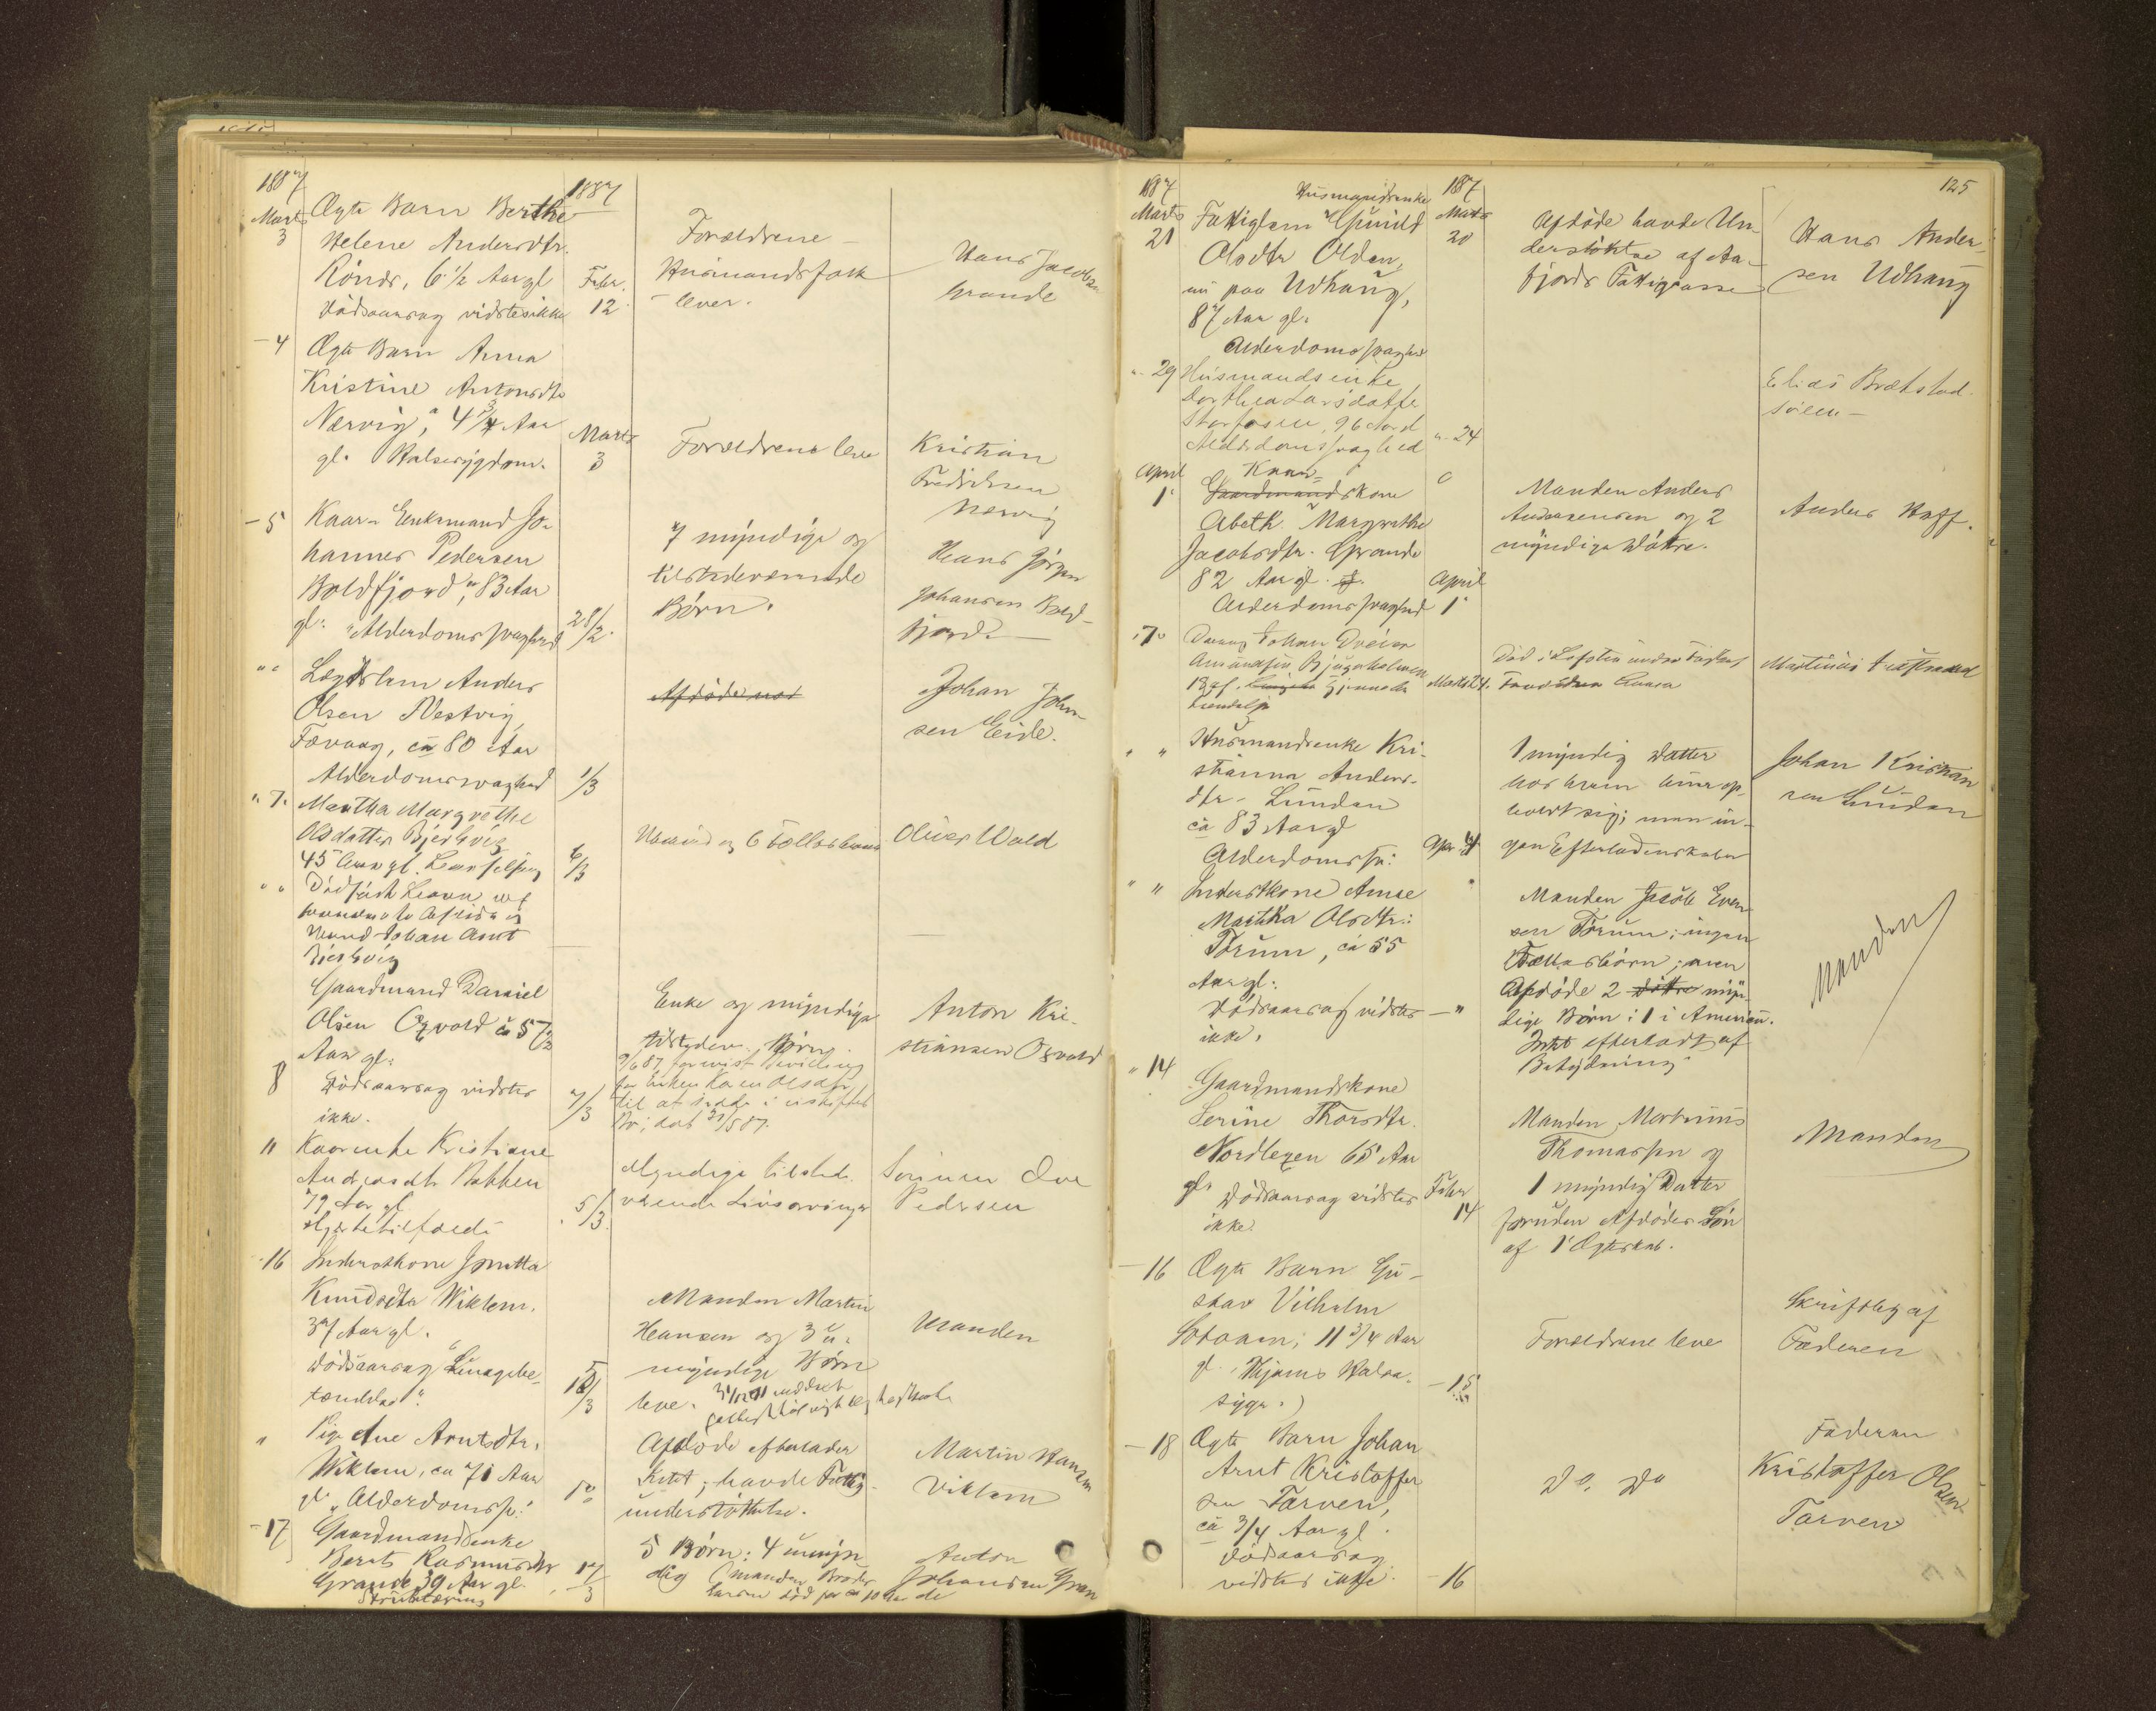 1887
Marts
3
Ægte Barn Berthe
Helene Andersdtr.
Rönds, 6 1/2 Aar gl
Dödsaarsag vidstes ikke
1887
Febr.
12
Forældrene
Husmandsfolk
lever.
Hans Jacobsen
Grande
- 4
Ægte Barn Anna
Kristine Antonsdtr
Nærvig, 4 3/4 Aar
gl. Halssygdom.
Marts
3
Forældrene leve
Kristian
Fredriksen
Nærvig
- 5
Kaar- Enkemand Jo-
hannes Pedersen
Boldfjord, 83 Aar
gl: "Alderdomssvaghed
28/2
7 myndige og
tilstedeværende
Börn.
Hans Jörgen
Johansen Bold-
fjord.
" "
Lægdslem Anders
Olsen Nestvig
Tævaag, ca 80 Aar
Alderdomssvaghed
1/3
Afdöde var
Johan Johan-
sen Eide.
" 7.
Martha Margrethe
Olsdatter
45 Aar gl.
6/3
Mand og 6 Fællesbørn
Oliver Wold
" "
Dödfödt Barn af
Johan Arnt
8
Gaardmand Daniel
Olsen Osvold ca 57 1/2
Aar gl:
Dödsaarsag vidstes
ikke.
7/3
Enke og myndige
tilstedev. Börn.
9/6 87 forevist Bevilling
for Enken Karen Olsdtr
til at sidde i uskiftet
Bo, dat 31/5 87.
Anton Kri-
stiansen Osvold
11
Kaarenke Kristiane
Andreasdtr
79 Aar gl
Hjertetilfælde
5/3
Myndige tilstede-
værende Livsarvinger
Pedersen
- 16
Inderstkone Jonetta
Knudsdtr Wiklem,
37 Aar gl.
Dödsaarsag "Lungebe-
tændelse".
15/3
Manden Martin
Hansen og 3 u-
myndige Börn
leve.
Manden
"
Pige Ane Arntsdtr.
Wiklem, ca 71 Aar
gl. "Alderdomssv:
Afdöde efterlader
Intet; havde Fattig-
understöttelse.
Martin Hansen
Viklem
- 17
Gaardmandsenke
Berit Rasmusdtr
Grande 39 Aar gl.
17/3
5 Börn: 4 umyn-
dig
Anton
Johansen Gran
de
125
1887
Marts
21
Husmandsenke
Fattiglem Gunild
Olsdtr Olden,
nu paa Udhaug,
87 Aar gl.
Alderdomssvaghed
1887
Marts
20
Afdöde havde Un-
derstöttelse af Aa-
fjords Fattigcasse
Hans Ander-
sen Udhaug
" 29
Husmandsenke
Dorthea Larsdatter
Storfosen, 96 Aar gl
Alderdomssvaghed
" 24
Elias Brækstad-
April
1
Kaar-
Gaardmandskone
Abeth. Margrethe
Jacobsdtr. Grande
82 Aar gl.
Alderdomssvaghed
April
1
Manden Anders
Andreassen og 2
myndige Döttre.
Anders Hoff.
" 7
Johan
13 Hjernebe-
tændelse
Marts 24.
Död i Lofoten under Fiskeri
Forældrene leve
" "
Husmandsenke Kri-
stianna Anders-
dtr. Lunden
ca 83 Aar gl
Alderdomssv:
Apr. 4
1 myndig Datter
hos hvem hun op-
holdt sig; men in-
gen Efterladenskaber
Johan Kristian
sen Lunden
" "
Inderstkone Anne
Martha Olsdtr.
Törum, ca 55
Aar gl:
Dödsaarsag vidstes
ikke.
"
Manden Jacob Even-
sen Törum; ingen
Fællesbörn; men
Afdöde 2 döttre myn-
dige Börn: 1 i Amerika.
Intet efterladt af
Betydning
Manden
" 14
Gaardmandskone
Serine Thorsdtr.
Nordlegen 65 Aar
gl. Dödsaarsag vidstes
ikke.
Febr
14
Manden Martinus
Thomassen og
1 myndig Datter
foruden Afdödes Sön
af 1' Ægteskab.
Manden
- 16
Ægte Barn Gu-
stav Vilhelm
11 3/4 Aar
gl.
syge.)
- 15
Forældrene leve
Skriftlig af
Faderen
- 18
Ægte Barn Johan
Arnt Kristoffer
sen Tarven,
ca 3/4 Aar gl.
Dödsaarsag
vidstes ikke.
- 16
Do. Do
Faderen
Kristoffer Olsen
Tarven